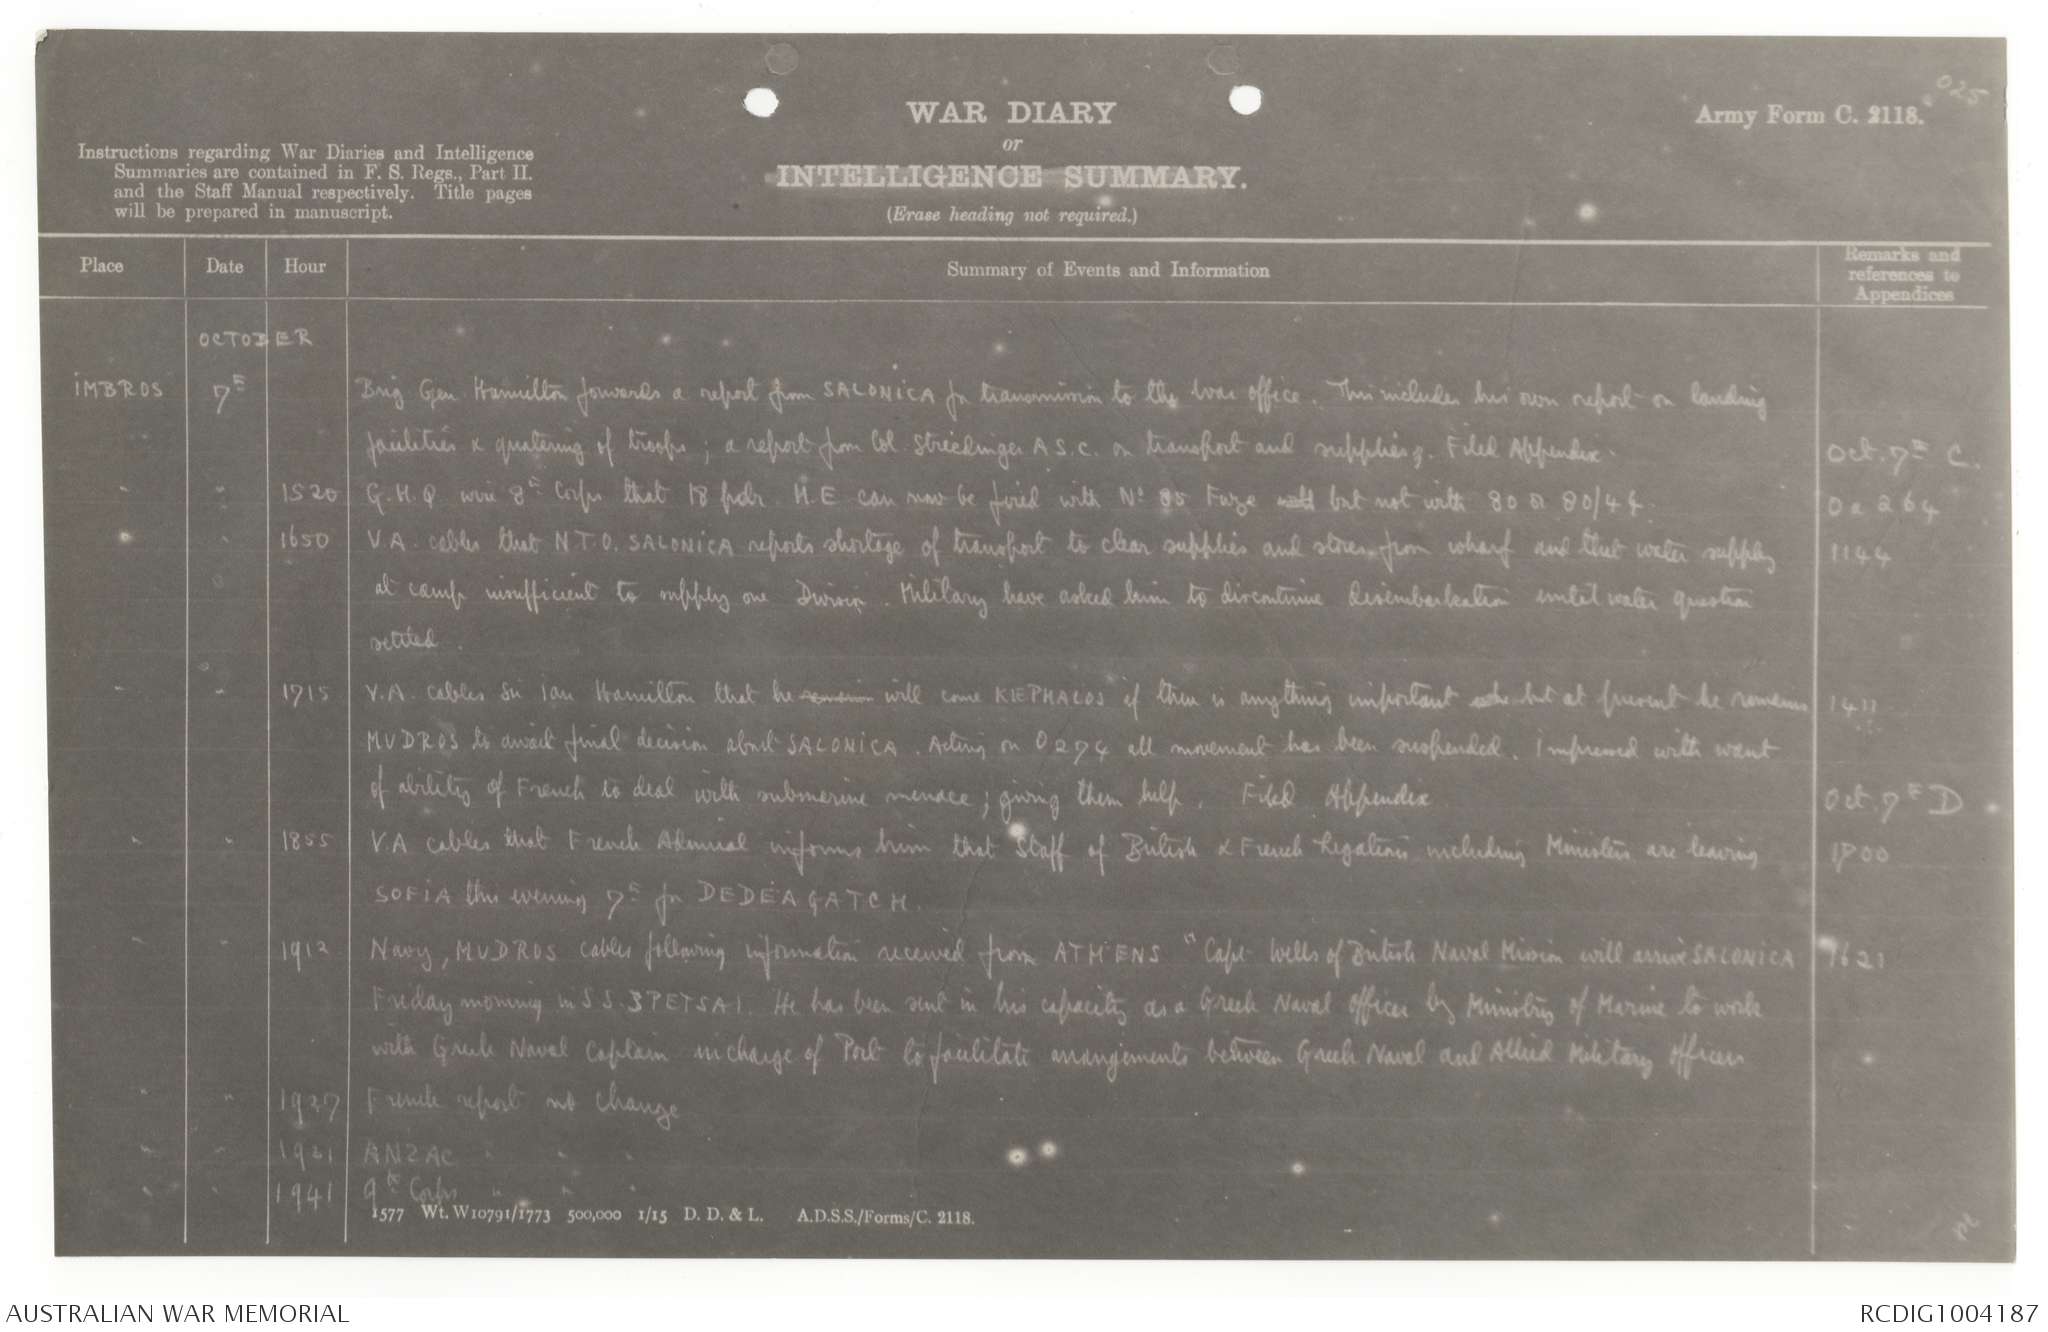 025
WAR DIARY
or
INTELLIGENCE SUMMARY.
(Erase heading not required.)
Army Form C. 2118.
Instructions regarding War Diaries and Intelligence
Summaries are contained in F. S. Regs., Part II.
and the Staff Manual respectively. Title pages
will be prepared in manuscript.
Place Date Hour Summary of Events and Information Remarks and references to Appendices
OCTOBER
IMBROS 7th Brig Gen. Hamilton forwards a report from SALONICA for transmission to the War office. This includes his own report on landing
facilities & quatering of troops; a report from Col. Striedinger A.S.C. on transport and supplies. Filed Appendix. Oct. 7th C.
" " 1520 G.H.Q. wire 8th Corps that 18 pdr. H.E can now be fired with No 85 Fuze but not with 80 or 80/44. Oa 264
" " 1650 V.A. cables that N.T.O. SALONICA reports shortage of transport to clear supplies and stores from wharf and that water supply 1144
at camp insufficient to supply one Division. Military have asked him to discontinue disembarkation until water question
settled.
" " 1715 V.A. cables Sir Ian Hamilton that he remains will come KEPHALOS if there is anything important but at present he remains
MUDROS to await final decision about SALONICA. Acting on O 274 all movement has been suspended. Impressed with want
of ability of French to deal with submarine menace; giving them help. Filed Appendix Oct. 7th D
" " 1855 V.A cables that French Admiral informs him that Staff of British & French Legations including Ministers are leaving 1800
SOFIA this evening 7th for DEDEAGATCH.
" " 1912 Navy, MUDROS cables following information received from ATHENS "Capt Wells of British Naval Mission will arrive SALONICA
Friday morning in S.S. SPETSAI. He has been sent in his capacity as a Greek Naval Officer by Ministry of Marine to work
with Greek Naval Captain in charge of Port to facilitate arrangements between Greek Naval and Allied Military officers
" " 1927 French report no change
" " 1931 ANZAC " " "
" " 1941 9th Corps " " "
1577 Wt. W10791/1773 500,000 1/15 D. D. & L. A.D.S.S./Forms/C. 2118.
AUSTRALIAN WAR MEMORIAL RCDIG1004187